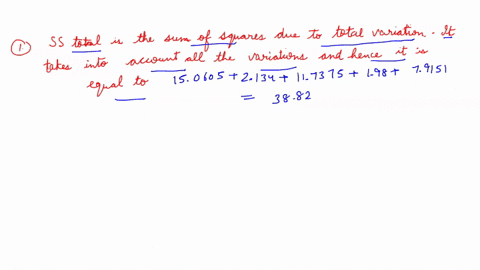 ① SS total is the sum of squares due to total variation. It
takes into account all the variations and hence it is
equal to 15.0605 + 2.134 + 11.7375 + 1.98 + 7.9151
= 38.82